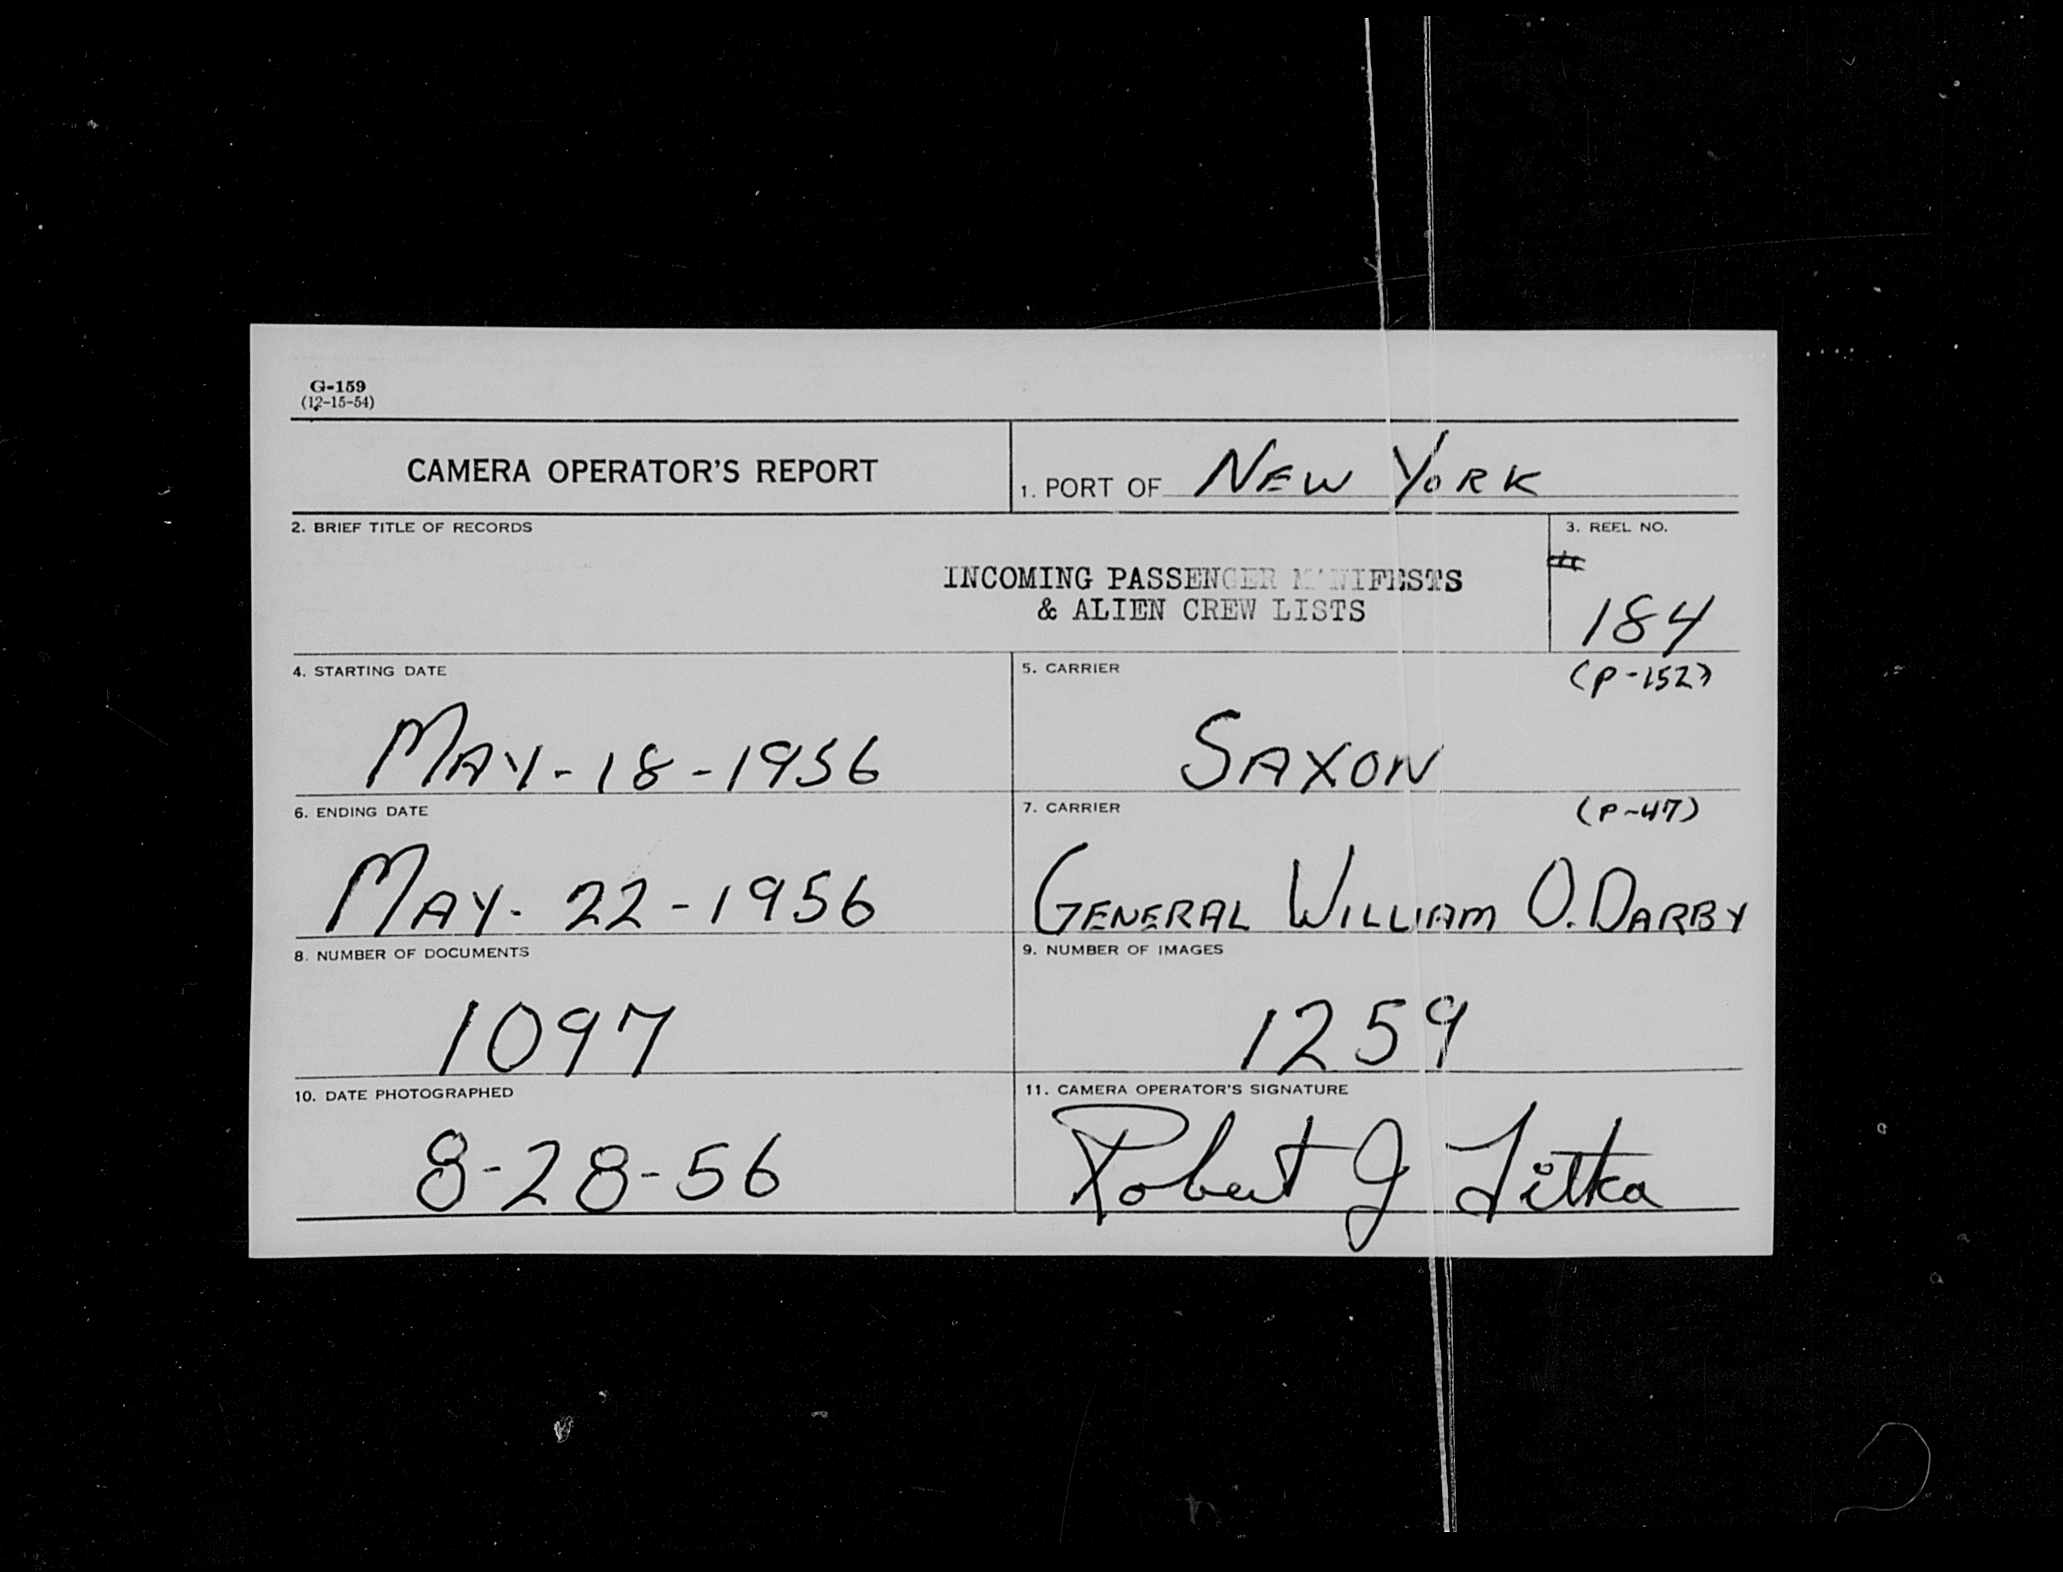 G-159
(12-15-54)
CAMERA OPERATOR'S REPORT
1. PORT OF NEW YORK
2. BRIEF TITLE OF RECORDS
INCOMING PASSENGER MANIFESTS
& ALIEN CREW LISTS
3. REEL NO.
#
184
4. STARTING DATE
MAY-18-1956
5. CARRIER
(P-152)
SAXON
6. ENDING DATE
MAY-22-1956
7. CARRIER
(P-47)
GENERAL WILLIAM O. DARBY
8. NUMBER OF DOCUMENTS
1097
9. NUMBER OF IMAGES
1259
10. DATE PHOTOGRAPHED
8-28-56
11. CAMERA OPERATOR'S SIGNATURE
Robert J